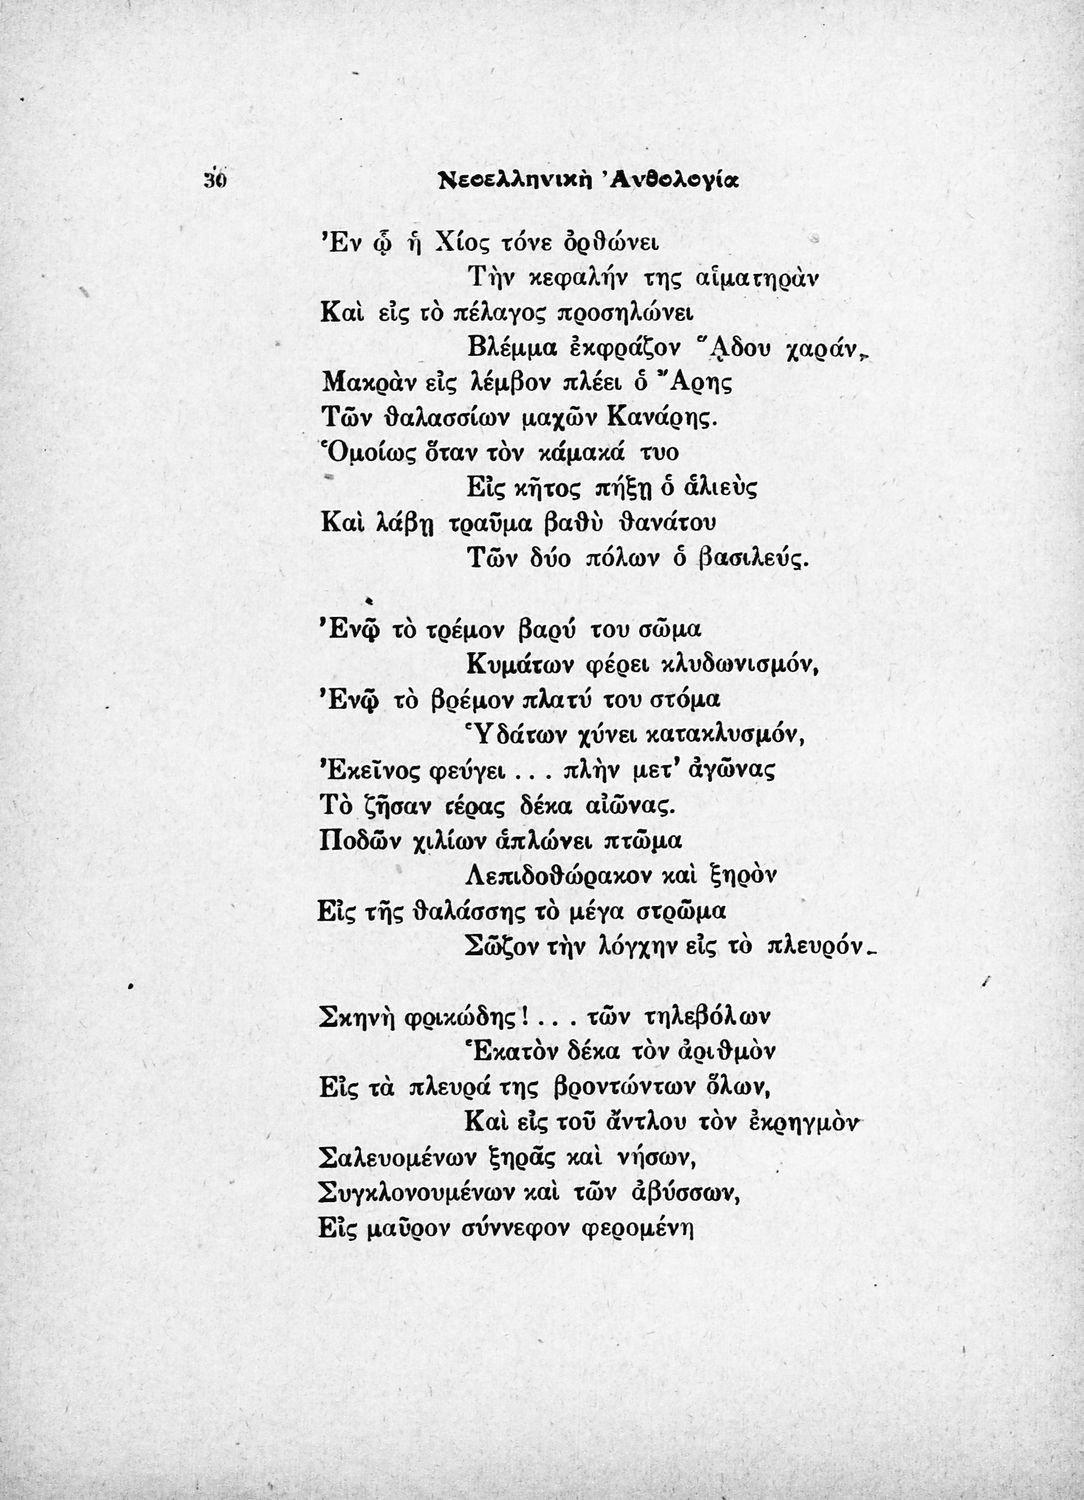 30 Νεοελληνικὴ Ἀνθολογία
Ἐν ᾧ ἡ Χίος τόνε ὀρθώνει
Τὴν κεφαλήν της αἱματηρὰν
Καὶ εἰς τὸ πέλαγος προσηλώνει
Βλέμμα ἐκφράζον ᾍδου χαράν,
Μακρὰν εἰς λέμβον πλέει ὁ Ἄρης
Τῶν θαλασσίων μαχῶν Κανάρης.
Ὁμοίως ὅταν τὸν κάμακά τυο
Εἰς κῆτος πήξῃ ὁ ἁλιεὺς
Καὶ λάβῃ τραῦμα βαθὺ θανάτου
Τῶν δύο πόλων ὁ βασιλεύς.
Ἐνῷ τὸ τρέμον βαρύ του σῶμα
Κυμάτων φέρει κλυδωνισμόν,
Ἐνῷ τὸ βρέμον πλατύ του στόμα
Ὑδάτων χύνει κατακλυσμόν,
Ἐκεῖνος φεύγει ... πλὴν μετ' ἀγῶνας
Τὸ ζῆσαν τέρας δέκα αἰῶνας.
Ποδῶν χιλίων ἁπλώνει πτῶμα
Λεπιδοθώρακον καὶ ξηρὸν
Εἰς τῆς θαλάσσης τὸ μέγα στρῶμα
Σῶζον τὴν λόγχην εἰς τὸ πλευρόν.
Σκηνὴ φρικώδης! ... τῶν τηλεβόλων
Ἑκατὸν δέκα τὸν ἀριθμὸν
Εἰς τὰ πλευρά της βροντώντων ὅλων,
Καὶ εἰς τοῦ ἄντλου τὸν ἐκρηγμὸν
Σαλευομένων ξηρᾶς καὶ νήσων,
Συγκλονουμένων καὶ τῶν ἀβύσσων,
Εἰς μαῦρον σύννεφον φερομένη